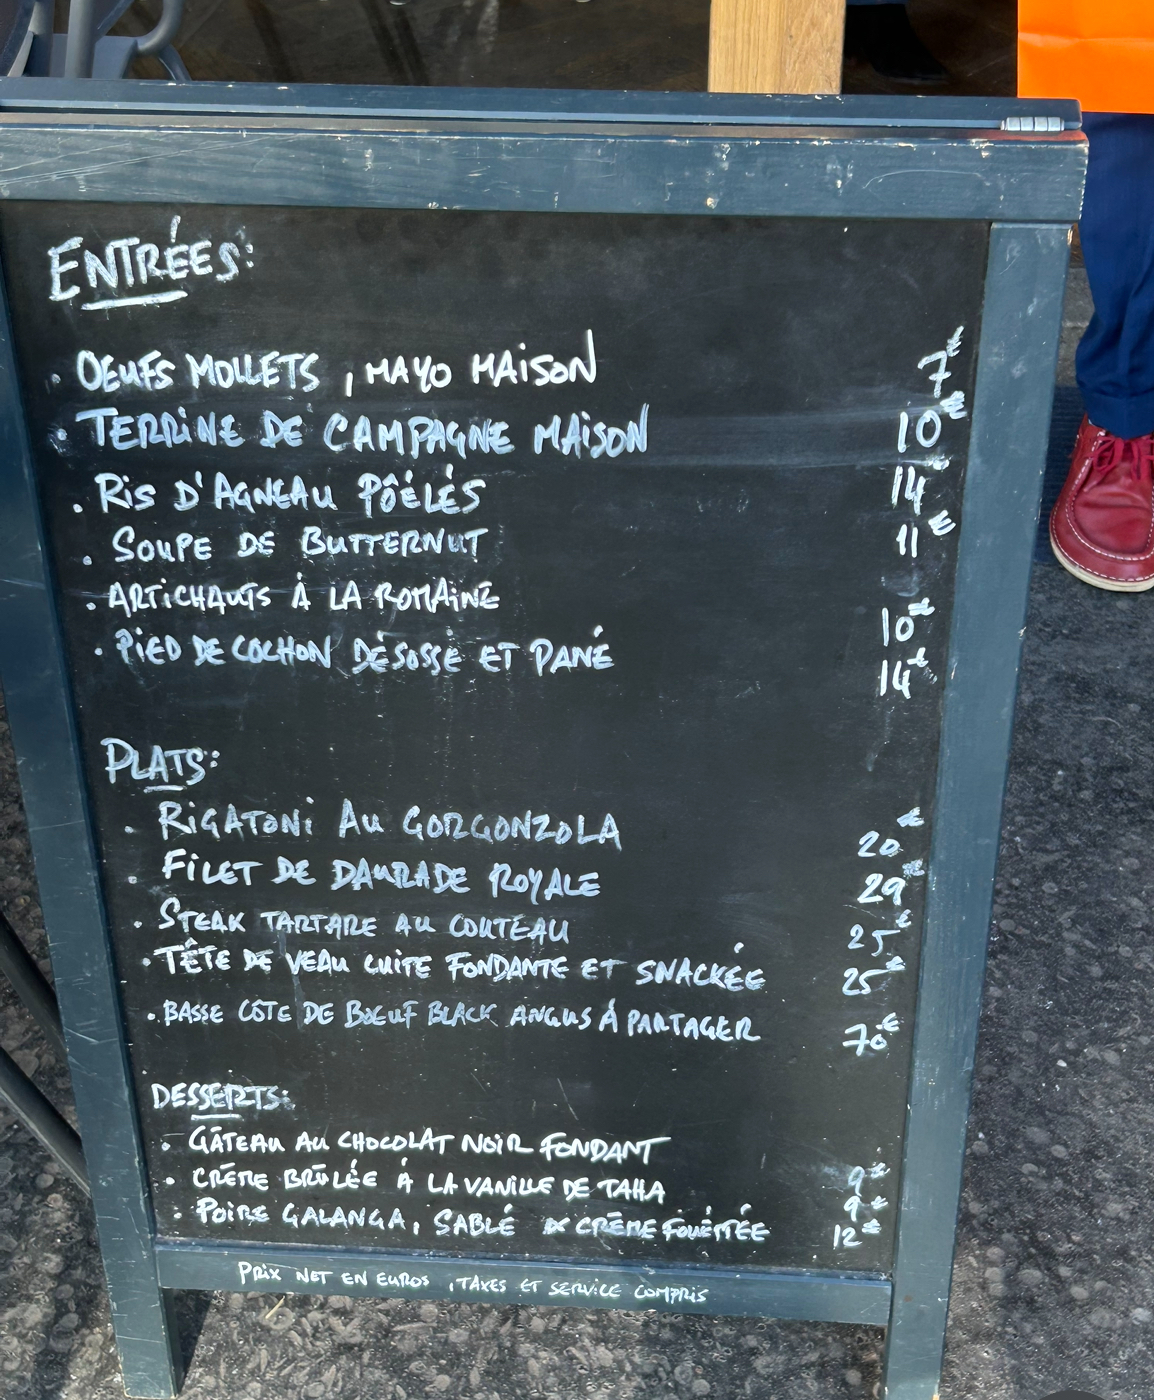 ENTRÉES:
. OEUFS MOLLETS, MAYO MAISON 7€
. TERRINE DE CAMPAGNE MAISON 10€
. RIS D'AGNEAU PÔÉLÉS 14€
. SOUPE DE BUTTERNUT 11€
. ARTICHAUTS À LA ROMAINE 10€
. PIED DE COCHON DÉSOSSÉ ET PANÉ 14€
PLATS:
. RIGATONI AU GORGONZOLA 20€
. FILET DE DAURADE ROYALE 29€
. STEAK TARTARE AU COUTEAU 25€
. TÊTE DE VEAU CUITE FONDANTE ET SNACKÉE 25€
. BASSE CÔTE DE BOEUF BLACK ANGUS À PARTAGER 70€
DESSERTS:
. GÂTEAU AU CHOCOLAT NOIR FONDANT 9€
. CRÈME BRÛLÉE À LA VANILLE DE TAHA 9€
. POIRE GALANGA, SABLÉ & CRÈME FOUETTÉE 12€
PRIX NET EN EUROS, TAXES ET SERVICE COMPRIS